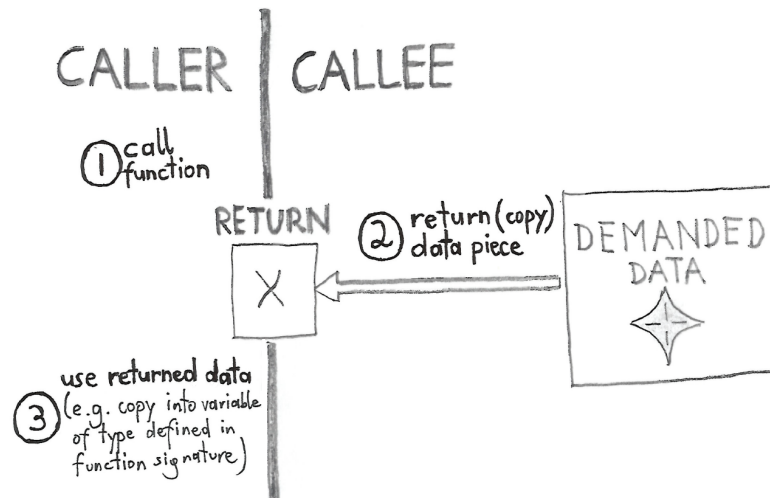 CALLER
CALLEE
1 call
function
RETURN
X
2 return (copy)
data piece
DEMANDED
DATA
3 use returned data
(e.g. copy into variable
of type defined in
function signature)